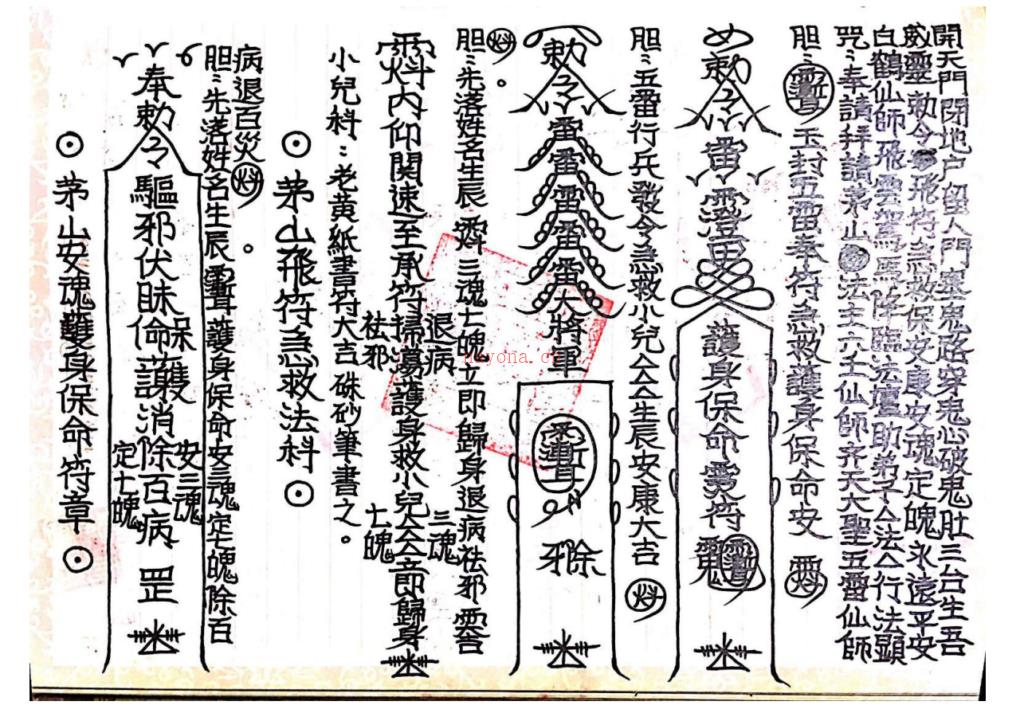 開天門閉地户留人門塞鬼路穿鬼心破鬼肚三台生吾
威靈勅令飛符急救保安康安魂定魄永遠平安
白鶴仙師飛雲駕馬降臨法壇助弟子仝法仝行法顯
咒:奉請拜請茅山法主六壬仙師齐天大聖五雷仙師
胆: 玉封五雷奉符急救護身保命安
勅令雷
護身保命灵符
胆:五雷行兵發令急救小兒仝仝生辰安康大吉
勅令雷雷雷雷雷大將軍
除邪
胆:先落姓名生辰 三魂七魄立即歸身退病祛邪
内仰関速至承符退病祛邪掃蕩護身救小兒仝仝三魂七魄立即歸身
小兒科:老黄紙書符大吉硃砂筆書之。
茅山飛符急救法科
病退百災。
胆:先落姓名生辰 護身保命安三魂定七魄除百
奉勅令驅邪伏昧保命護消除百病安三魂定七魄罡
茅山安魂護身保命符章
heyona.c